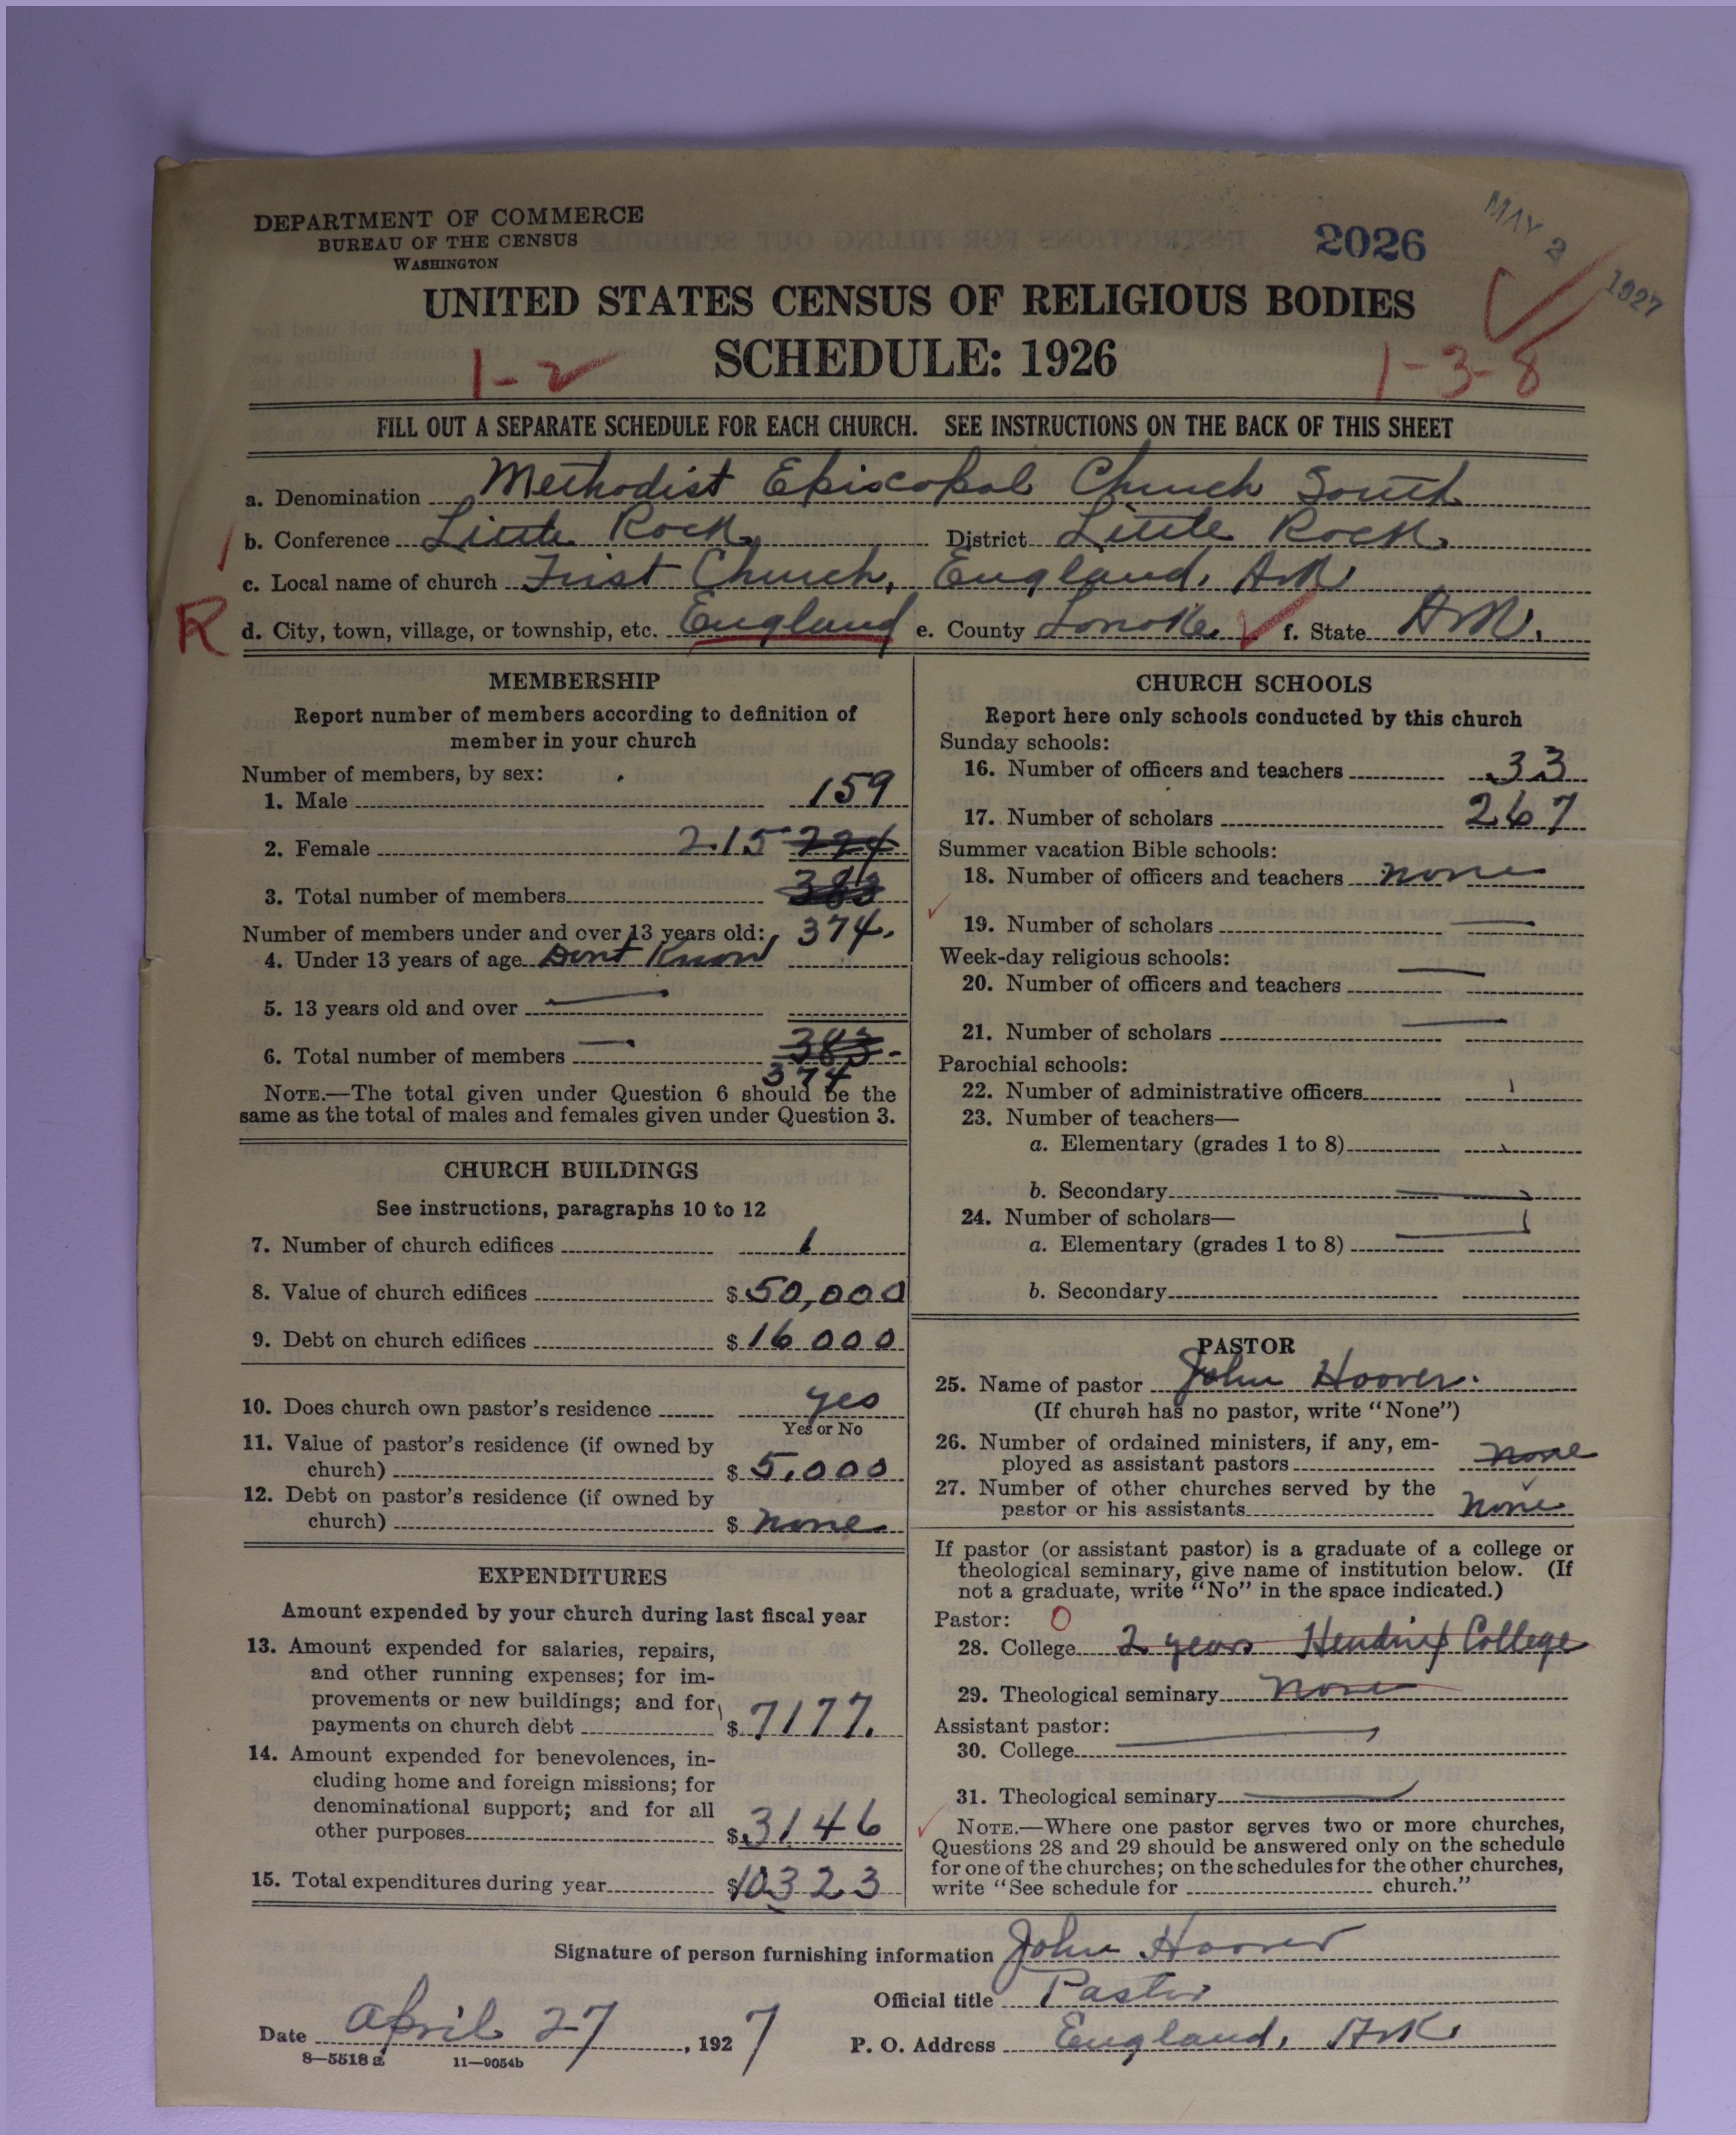 DEPARTMENT OF COMMERCE
BUREAU OF THE CENSUS
WASHINGTON
2026
MAY 2 1927
UNITED STATES CENSUS OF RELIGIOUS BODIES
SCHEDULE: 1926
1-2
1-3-8
FILL OUT A SEPARATE SCHEDULE FOR EACH CHURCH. SEE INSTRUCTIONS ON THE BACK OF THIS SHEET
a. Denomination Methodist Episcopal Church South
b. Conference Little Rock District Little Rock.
c. Local name of church First Church, England, Ark
R d. City, town, village, or township, etc. England e. County Lonoke. f. State Ark.
MEMBERSHIP
Report number of members according to definition of
member in your church
Number of members, by sex:
1. Male 159
2. Female 215 224
3. Total number of members 383
Number of members under and over 13 years old: 374.
4. Under 13 years of age Dont Know
5. 13 years old and over
6. Total number of members 383
374
NOTE.—The total given under Question 6 should be the
same as the total of males and females given under Question 3.
CHURCH BUILDINGS
See instructions, paragraphs 10 to 12
7. Number of church edifices 1
8. Value of church edifices $ 50,000
9. Debt on church edifices $ 16 000
10. Does church own pastor's residence yes
Yes or No
11. Value of pastor's residence (if owned by
church) $ 5,000
12. Debt on pastor's residence (if owned by
church) $ none
EXPENDITURES
Amount expended by your church during last fiscal year
13. Amount expended for salaries, repairs,
and other running expenses; for im-
provements or new buildings; and for
payments on church debt $ 7177.
14. Amount expended for benevolences, in-
cluding home and foreign missions; for
denominational support; and for all
other purposes $ 3146
15. Total expenditures during year $ 10323
CHURCH SCHOOLS
Report here only schools conducted by this church
Sunday schools:
16. Number of officers and teachers 33
17. Number of scholars 267
Summer vacation Bible schools:
18. Number of officers and teachers none
19. Number of scholars
Week-day religious schools:
20. Number of officers and teachers
21. Number of scholars
Parochial schools:
22. Number of administrative officers
23. Number of teachers—
a. Elementary (grades 1 to 8)
b. Secondary
24. Number of scholars—
a. Elementary (grades 1 to 8)
b. Secondary
PASTOR
25. Name of pastor John Hoover.
(If church has no pastor, write "None")
26. Number of ordained ministers, if any, em-
ployed as assistant pastors none
27. Number of other churches served by the
pastor or his assistants none
If pastor (or assistant pastor) is a graduate of a college or
theological seminary, give name of institution below. (If
not a graduate, write "No" in the space indicated.)
Pastor: O
28. College 2 years Hendrix College
29. Theological seminary none
Assistant pastor:
30. College
31. Theological seminary
NOTE.—Where one pastor serves two or more churches,
Questions 28 and 29 should be answered only on the schedule
for one of the churches; on the schedules for the other churches,
write "See schedule for church."
Signature of person furnishing information John Hoover
Official title Pastor
Date April 27, 1927 P. O. Address England, Ark.
8—5518 a 11—9054b